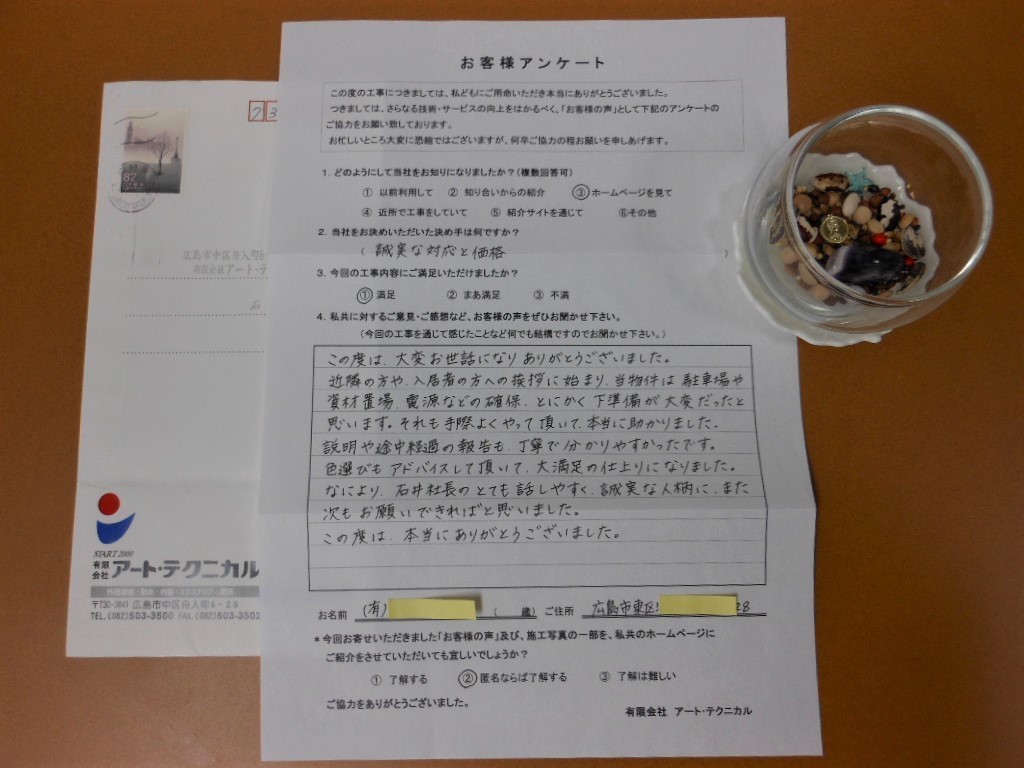 お客様アンケート
この度の工事につきましては、私どもにご用命いただき本当にありがとうございました。
つきましては、さらなる技術・サービスの向上をはかるべく、「お客様の声」として下記のアンケートの
ご協力をお願い致しております。
お忙しいところ大変に恐縮ではございますが、何卒ご協力の程お願いを申しあげます。
1. どのようにして当社をお知りになりましたか？(複数回答可)
① 以前利用して ② 知り合いからの紹介 ③ ホームページを見て
④ 近所で工事をしていて ⑤ 紹介サイトを通じて ⑥その他
2. 当社をお決めいただいた決め手は何ですか？
( 誠実な対応と価格 )
3. 今回の工事内容にご満足いただけましたか？
① 満足 ② まあ満足 ③ 不満
4. 私共に対するご意見・ご感想など、お客様の声をぜひお聞かせ下さい。
(今回の工事を通じて感じたことなど何でも結構ですのでお聞かせ下さい。)
この度は、大変お世話になりありがとうございました。
近隣の方や、入居者の方への挨拶に始まり、当物件は駐車場や
資材置場、電源などの確保、とにかく下準備が大変だったと
思います。それも手際よくやって頂いて、本当に助かりました。
説明や途中経過の報告も、丁寧で分かりやすかったです。
色選びもアドバイスして頂いて、大満足の仕上りになりました。
なにより、石井社長のとても話しやすく、誠実な人柄に、また
次もお願いできればと思いました。
この度は、本当にありがとうございました。
お名前 (有) ( 歳) ご住所 広島市東区 28
*今回お寄せいただきました「お客様の声」及び、施工写真の一部を、私共のホームページに
ご紹介をさせていただいても宜しいでしょうか？
① 了解する ② 匿名ならば了解する ③ 了解は難しい
ご協力をありがとうございました。
有限会社 アート・テクニカル
82
73
広島市中区舟入町6
有限会社アート・テ
石
START 2000
有限会社 アート・テクニカル
〒730-0841 広島市中区舟入町6-28
TEL.(082)503-3500 FAX.(082)503-3502